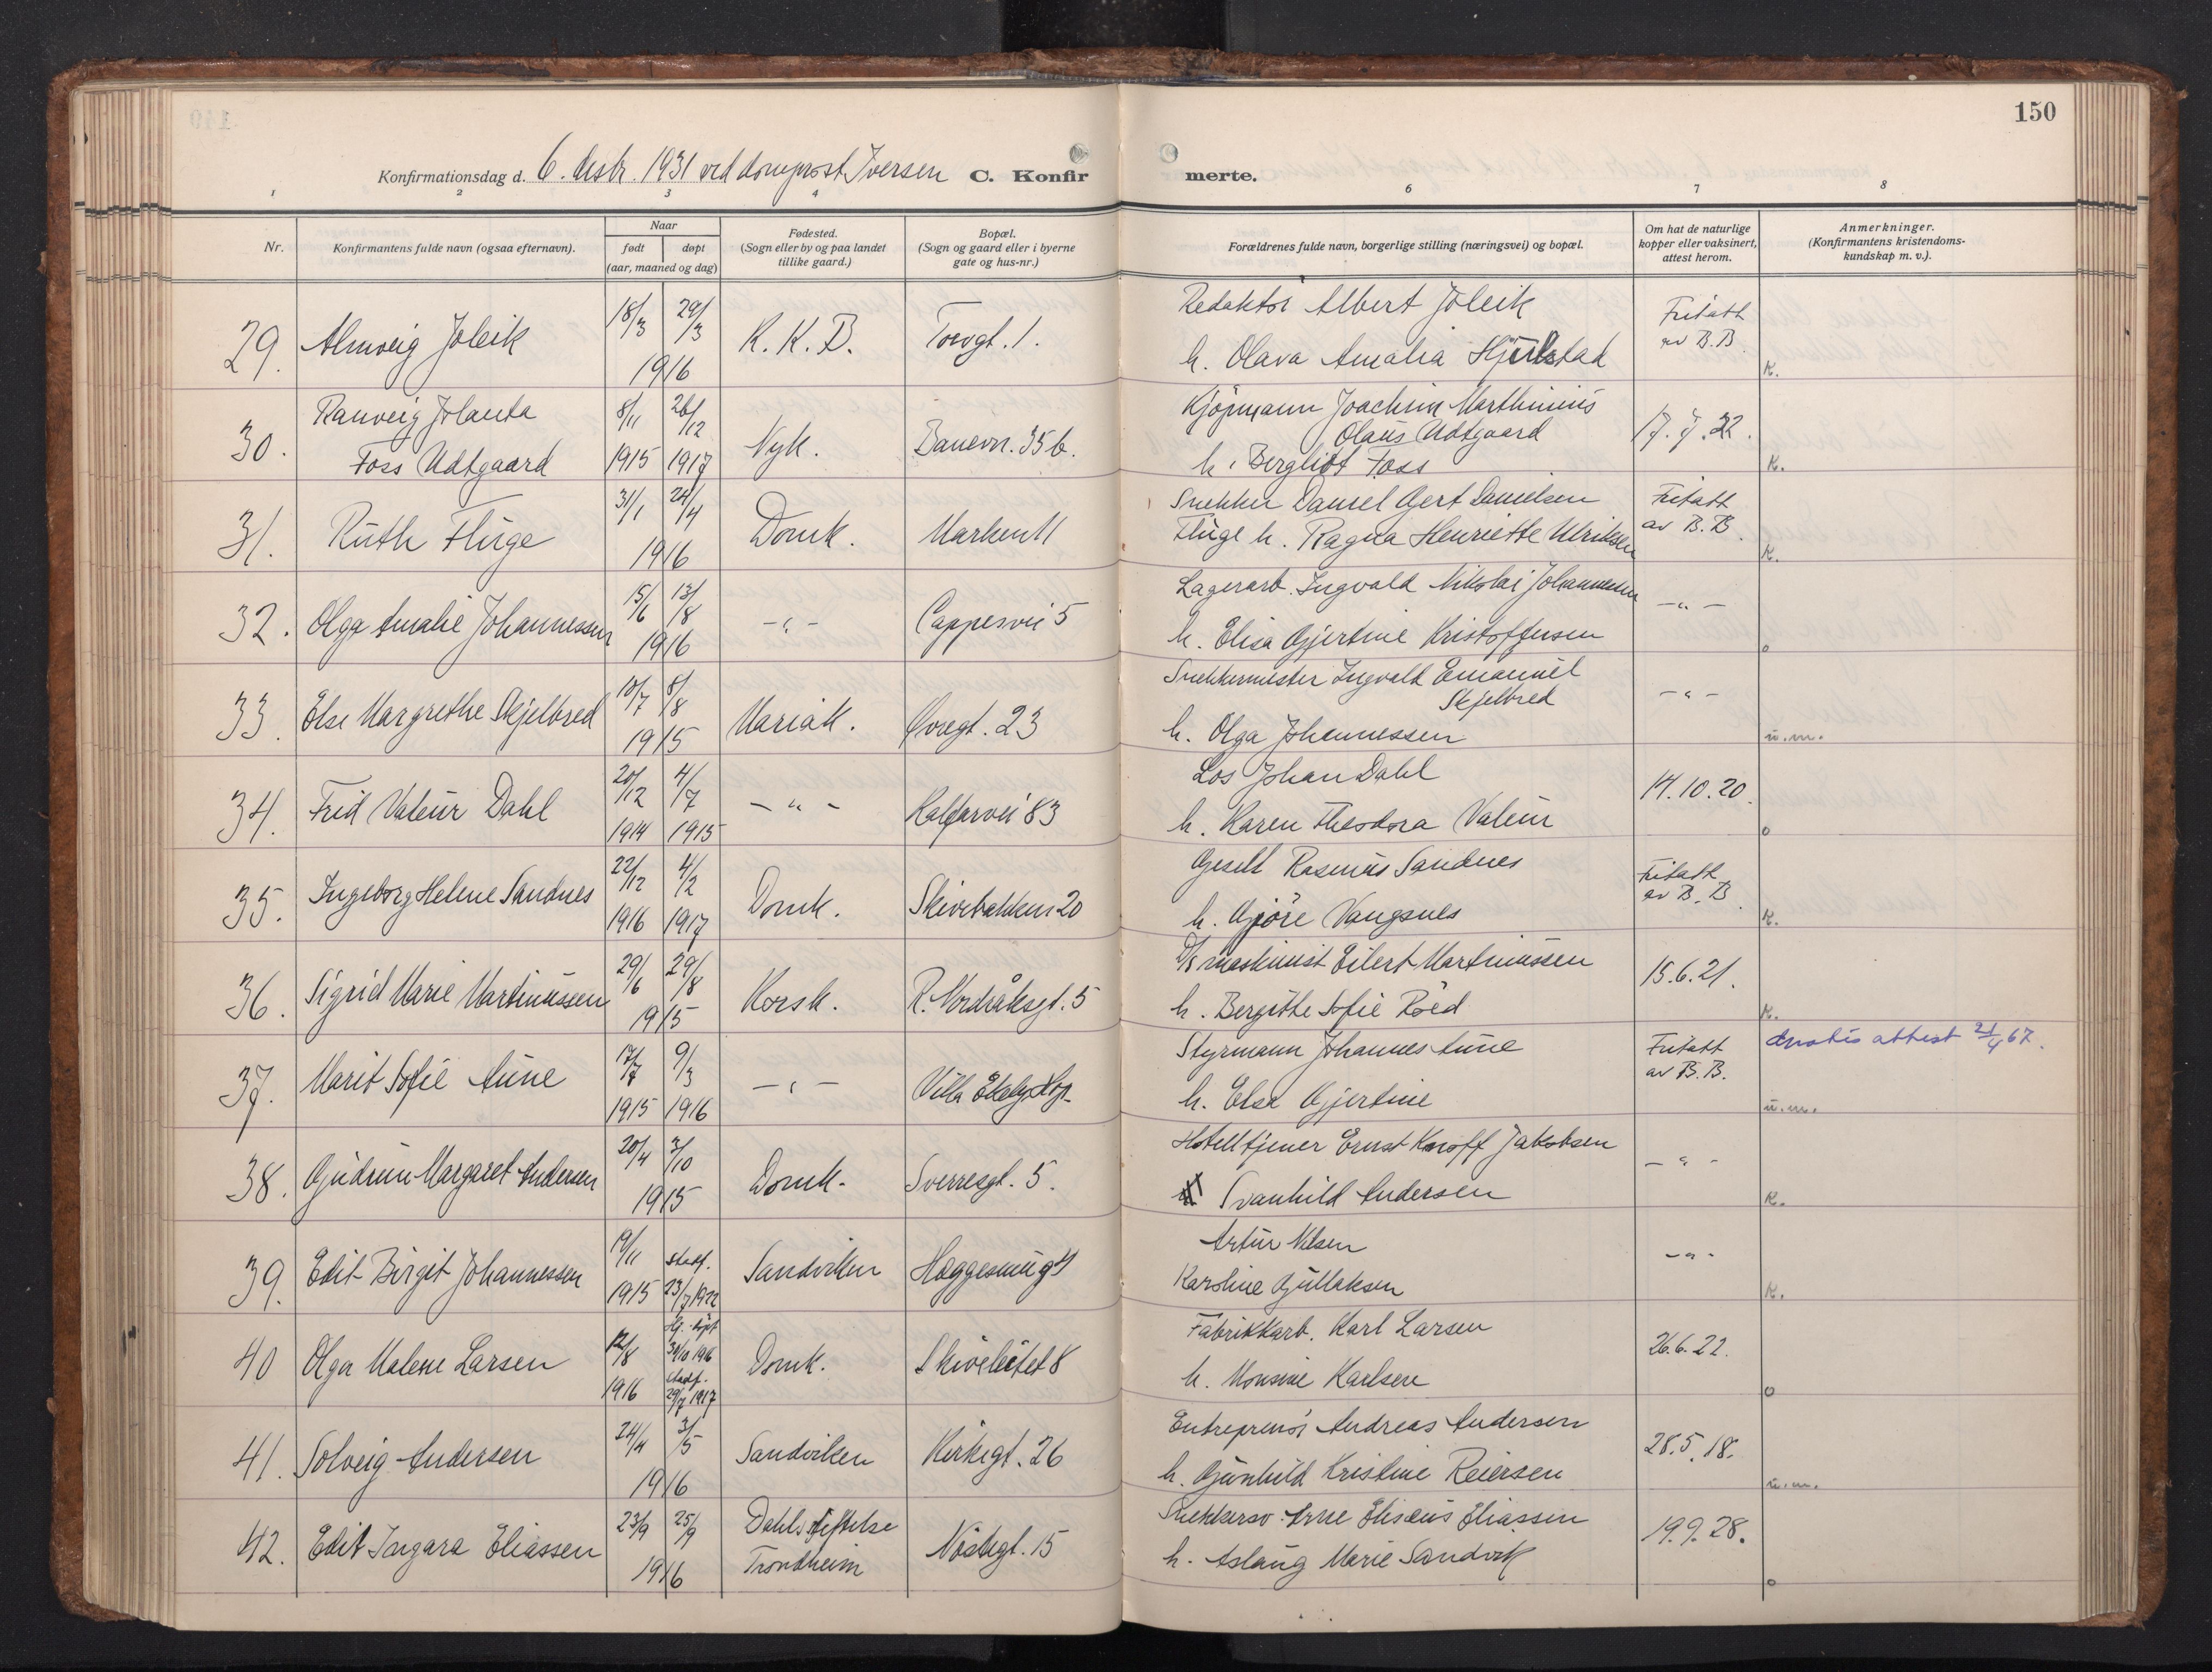 150
Konfirmationsdag d. 6. desbr. 1931 ved domprost Iversen C. Konfirmerte.
1 2 3 4 6 7 8
Nr.
Konfirmantens fulde navn (ogsaa efternavn).
Naar
født
døpt
(aar, maaned og dag)
Fødested.
(Sogn eller by og paa landet
tillike gaard.)
Bopæl.
(Sogn og gaard eller i byerne
gate og hus-nr.)
Forældrenes fulde navn, borgerlige stilling (næringsvei) og bopæl.
Om hat de naturlige
kopper eller vaksinert,
attest herom.
Anmerkninger.
(Konfirmantens kristendoms-
kundskap m. v.).
29. Almveig Joleik 18/3 29/3 1916 K. K. B. Torvgt. 1. Redaktør Albert Joleik
h. Olava Amalia Hjulstad Fritatt av B.B. K.
30. Ranveig Jolanta
Foss Udtgaard 8/11 1915 26/12 1917 Nyk. Banevn. 35 b. Kjøpmann Joachim Marthinius
Olaus Udtgaard
h. Bergliot Foss 17.7.22. K.
31. Ruth Fluge 31/1 24/4 1916 Domk. Marken 11 Snekker Daniel Gert Danielsen
Fluge h. Ragna Henriette Ulriksen Fritatt av B.B. K.
32. Olga Amalie Johannessen 15/6 13/8 1916 -"- Cappesvei 5 Lagerarb. Ingvald Nikolai Johannessen
h. Elisa Gjertine Kristoffersen -"- o
33. Else Margrethe Skjelbred 10/7 8/8 1915 Mariak. Øvregt. 23 Snekkermester Ingvald Emanuel
Skjelbred
h. Olga Johannessen -"- u.m.
34. Frid Valeur Dahl 20/12 1914 4/7 1915 -"- Kalfarvei 83 Los Johan Dahl
h. Karen Theodora Valeur 14.10.20. o
35. Ingeborg Helene Sandnes 22/12 1916 4/2 1917 Domk. Skivebakken 20 Rasmus Sandnes
h. Gjøre Vangsnes Fritatt av B.B. K.
36. Sigrid Marie Martinussen 29/6 29/8 1915 Korsk. R. Nordråksgt. 5 D/s maskinist Eilert Martinussen
h. Bergitte Sofie Røed 15.6.21. K.
37. Marit Sofie Aune 17/7 1915 9/3 1916 -"- Villa Hop. Styrmann Johannes Aune
h. Elsa Gjertine Fritatt av B.B. u.m. Gratis attest 21/4 67.
38. Gudrun Margaret Andersen 20/4 3/10 1915 Domk. Sverresgt. 5. Hotelltjener Ernst Knoff Jakobsen
Svanhild Andersen -"- K.
39. Edit Birgit Johannessen 19/11 1915 stadf. 23/7 1922 Sandviken Artur Nilsen
Karoline Gullaksen -"- K.
40 Olga Malene Larsen 12/8 1916 Hj. døpt 30/10 1916 stadf. 29/7 1917 Domk. Skiveleitet 8 Fabrikkarb. Karl Larsen
h. Monsine Karlsen 26.6.22. o
41. Solveig Andersen 24/4 3/5 1916 Sandviken Kirkegt. 26 Entreprenør Andreas Andersen
h. Gunhild Kristine Reiersen 28.5.18. u.m.
42. Edit Ingara Eliassen 23/9 25/9 1916 Dahls stiftelse
Trondheim Nøstegt. 15 Snekkersv. Arne Elisæus Eliassen
h. Aslaug Marie Sandvik 19.9.28. o